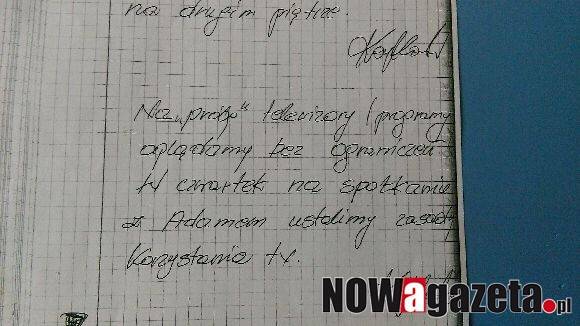 na drugim piętrze.
Na „próbę" telewizory / programy
oglądamy bez ograniczeń
W czwartek na spotkanie
z Adamem ustalimy zasady
Korzystania tv.
NOWagazeta.pl